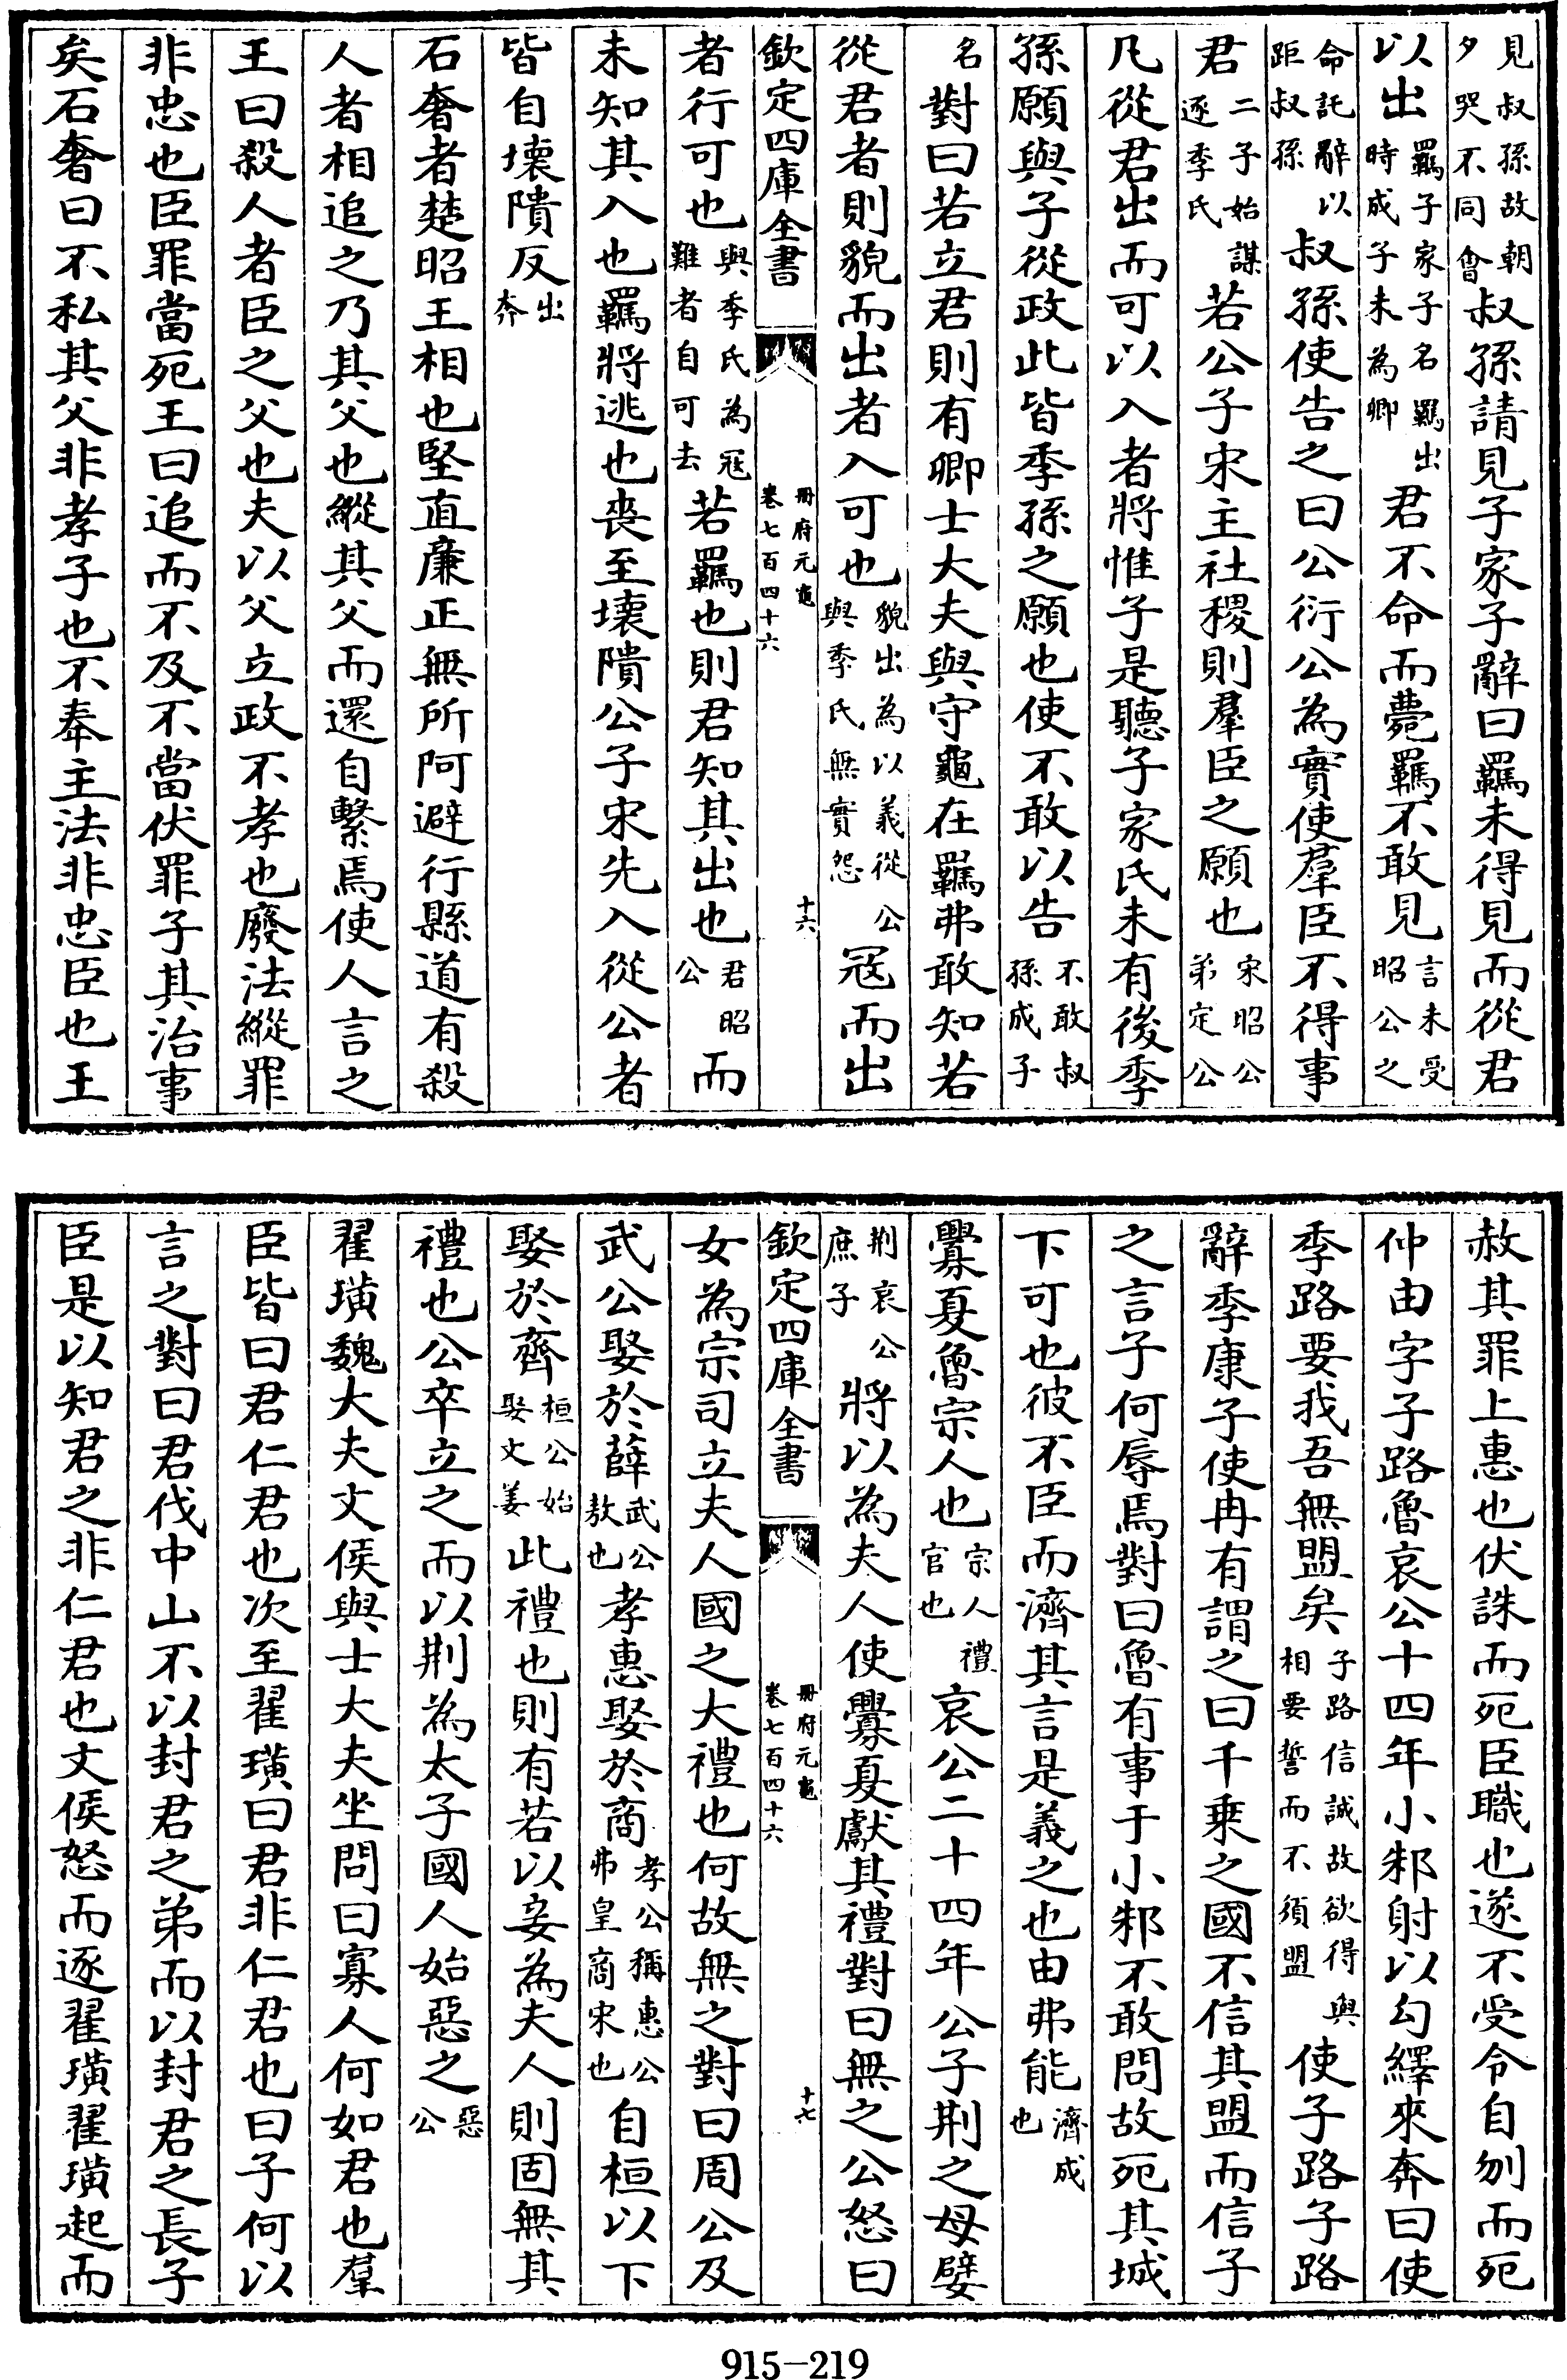 見叔孫故朝夕哭不同會叔孫請見子家子辭曰羈未得見而從君
以出羈子家子名羈出時成子未為卿君不命而薨羈不敢見言未受昭公之
命託辭以距叔孫叔孫使告之曰公衍公為實使羣臣不得事
君二子始謀逐季氏若公子宋主社稷則羣臣之願也宋昭公弟定公
凡從君出而可以入者將惟子是聽子家氏未有後季
孫願與子從政此皆季孫之願也使不敢以告不敢叔孫成子
名對曰若立君則有卿士大夫與守龜在羈弗敢知若
從君者則貌而出者入可也貌出為以義從公與季氏無實怨冦而出
欽定四庫全書 冊府元龜卷七百四十六 十六
者行可也與季氏為冦難者自可去若羈也則君知其出也君昭公而
未知其入也羈將逃也喪至壞隤公子宋先入從公者
皆自壞隤反出奔
石奢者楚昭王相也堅直廉正無所阿避行縣道有殺
人者相追之乃其父也縱其父而還自繫焉使人言之
王曰殺人者臣之父也夫以父立政不孝也廢法縱罪
非忠也臣罪當死王曰追而不及不當伏罪子其治事
矣石奢曰不私其父非孝子也不奉主法非忠臣也王
赦其罪上惠也伏誅而死臣職也遂不受令自刎而死
仲由字子路魯哀公十四年小邾射以勾繹來奔曰使
季路要我吾無盟矣子路信誠故欲得與相要誓而不須盟使子路子路
辭季康子使冉有謂之曰千乗之國不信其盟而信子
之言子何辱焉對曰魯有事于小邾不敢問故死其城
下可也彼不臣而濟其言是義之也由弗能濟成也
釁夏魯宗人也宗人禮官也哀公二十四年公子荆之母嬖
荆哀公庶子將以為夫人使釁夏獻其禮對曰無之公怒曰
欽定四庫全書 冊府元龜卷七百四十六 十七
女為宗司立夫人國之大禮也何故無之對曰周公及
武公娶於薛武公敖也孝惠娶於商孝公稱惠公弗皇商宋也自桓以下
娶於齊桓公始娶文姜此禮也則有若以妾為夫人則固無其
禮也公卒立之而以荆為太子國人始惡之惡公
翟璜魏大夫文侯與士大夫坐問曰寡人何如君也羣
臣皆曰君仁君也次至翟璜曰君非仁君也曰子何以
言之對曰君伐中山不以封君之弟而以封君之長子
臣是以知君之非仁君也文侯怒而逐翟璜翟璜起而
915-219